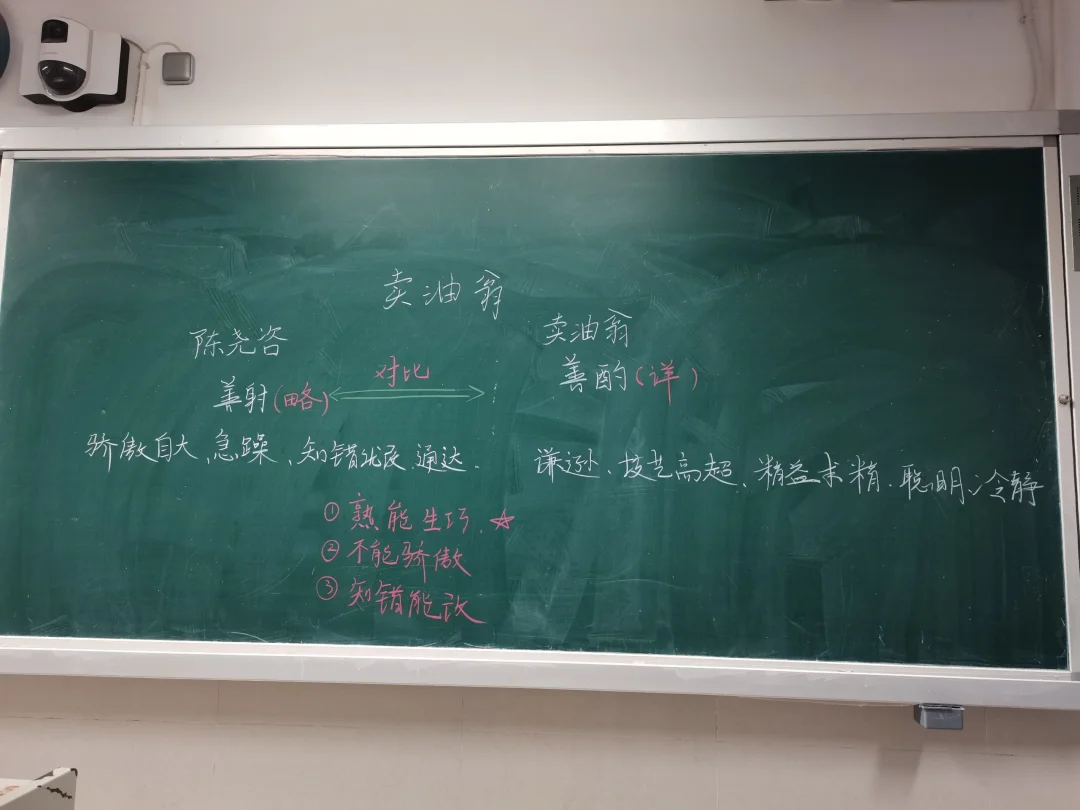 卖油翁
陈尧咨
卖油翁
善射(略)
对比
善酌(详)
骄傲自大、急躁、知错就改 通达.
谦逊、技艺高超、精益求精.聪明、冷静
①熟能生巧.☆
②不能骄傲
③知错能改